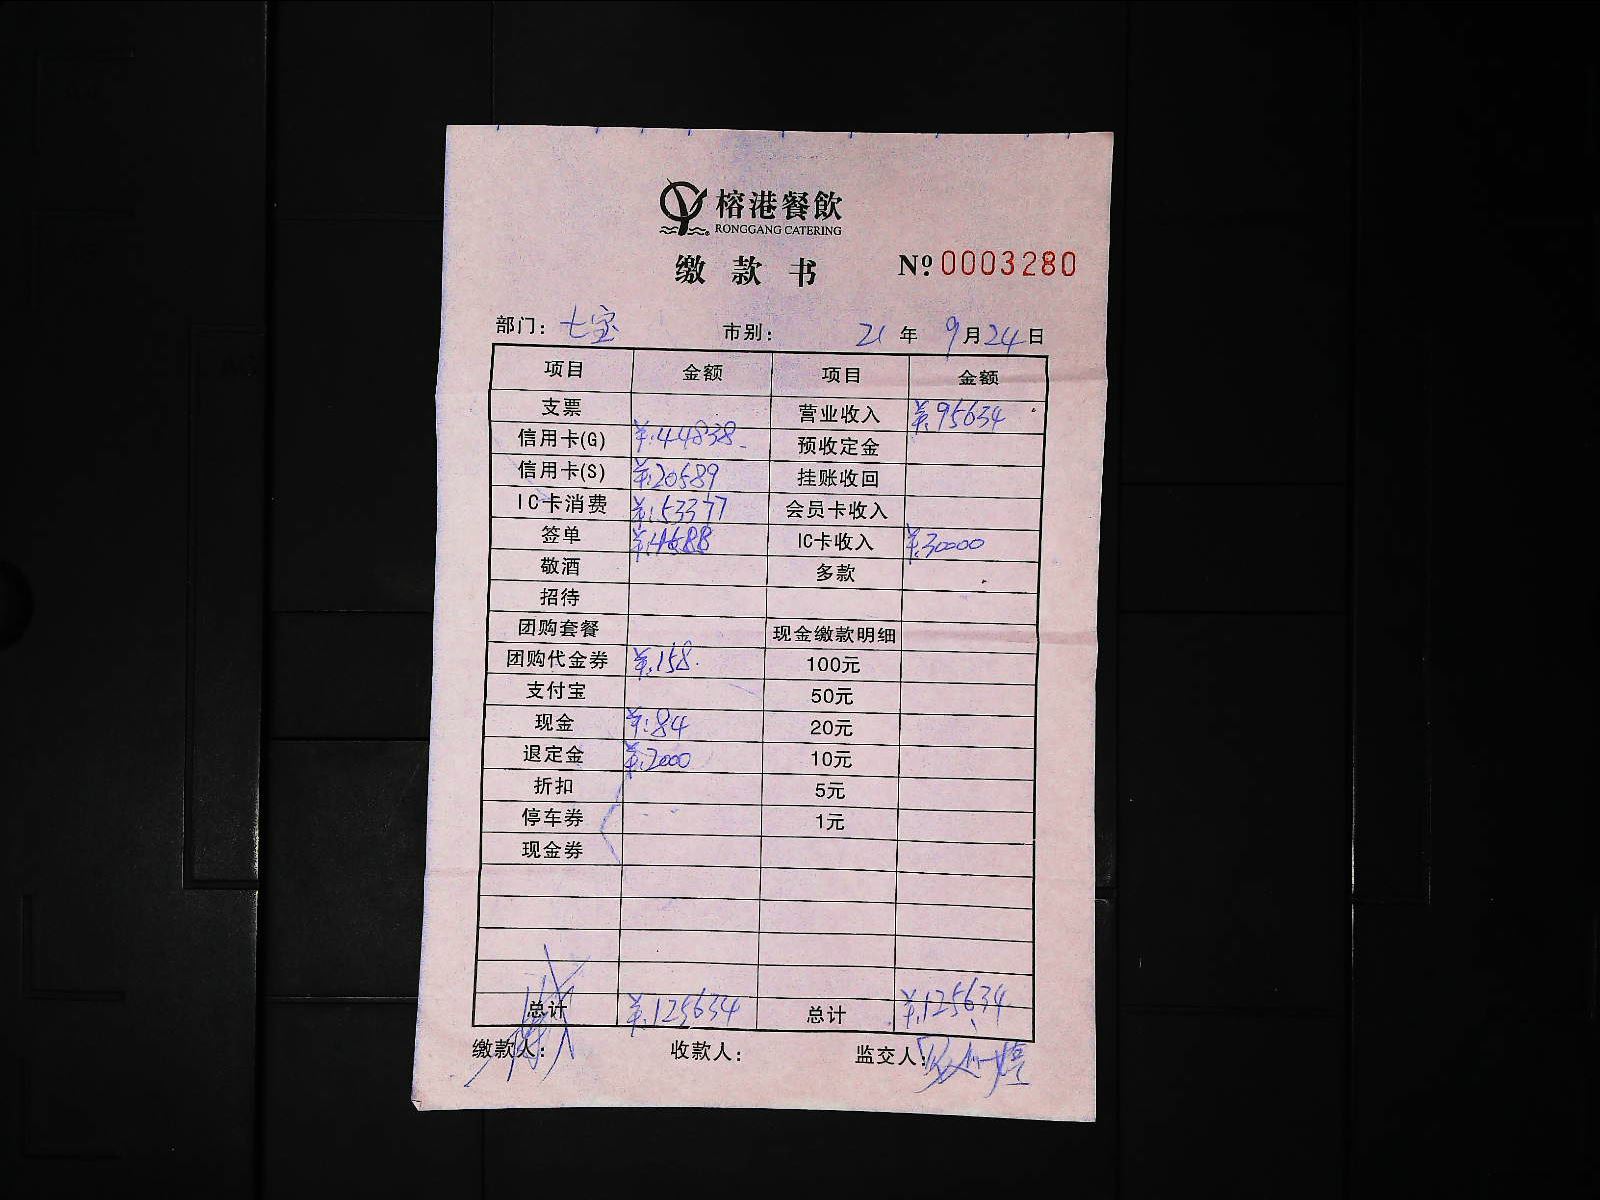 榕港餐飲
RONGGANG CATERING
缴款书 Nº 0003280
部门: 七宝 市别: 21年 9月24日
项目 金额 项目 金额
支票 营业收入 ¥:95634
信用卡(G) ¥:44838 预收定金
信用卡(S) ¥:20589 挂账收回
IC卡消费 ¥:53377 会员卡收入
签单 ¥:4588 IC卡收入 ¥:30000
敬酒 多款
招待
团购套餐 现金缴款明细
团购代金券 ¥:158 100元
支付宝 50元
现金 ¥:84 20元
退定金 ¥:2000 10元
折扣 5元
停车券 1元
现金券
总计 ¥:125634 总计 ¥:125634
缴款人: 收款人: 监交人: